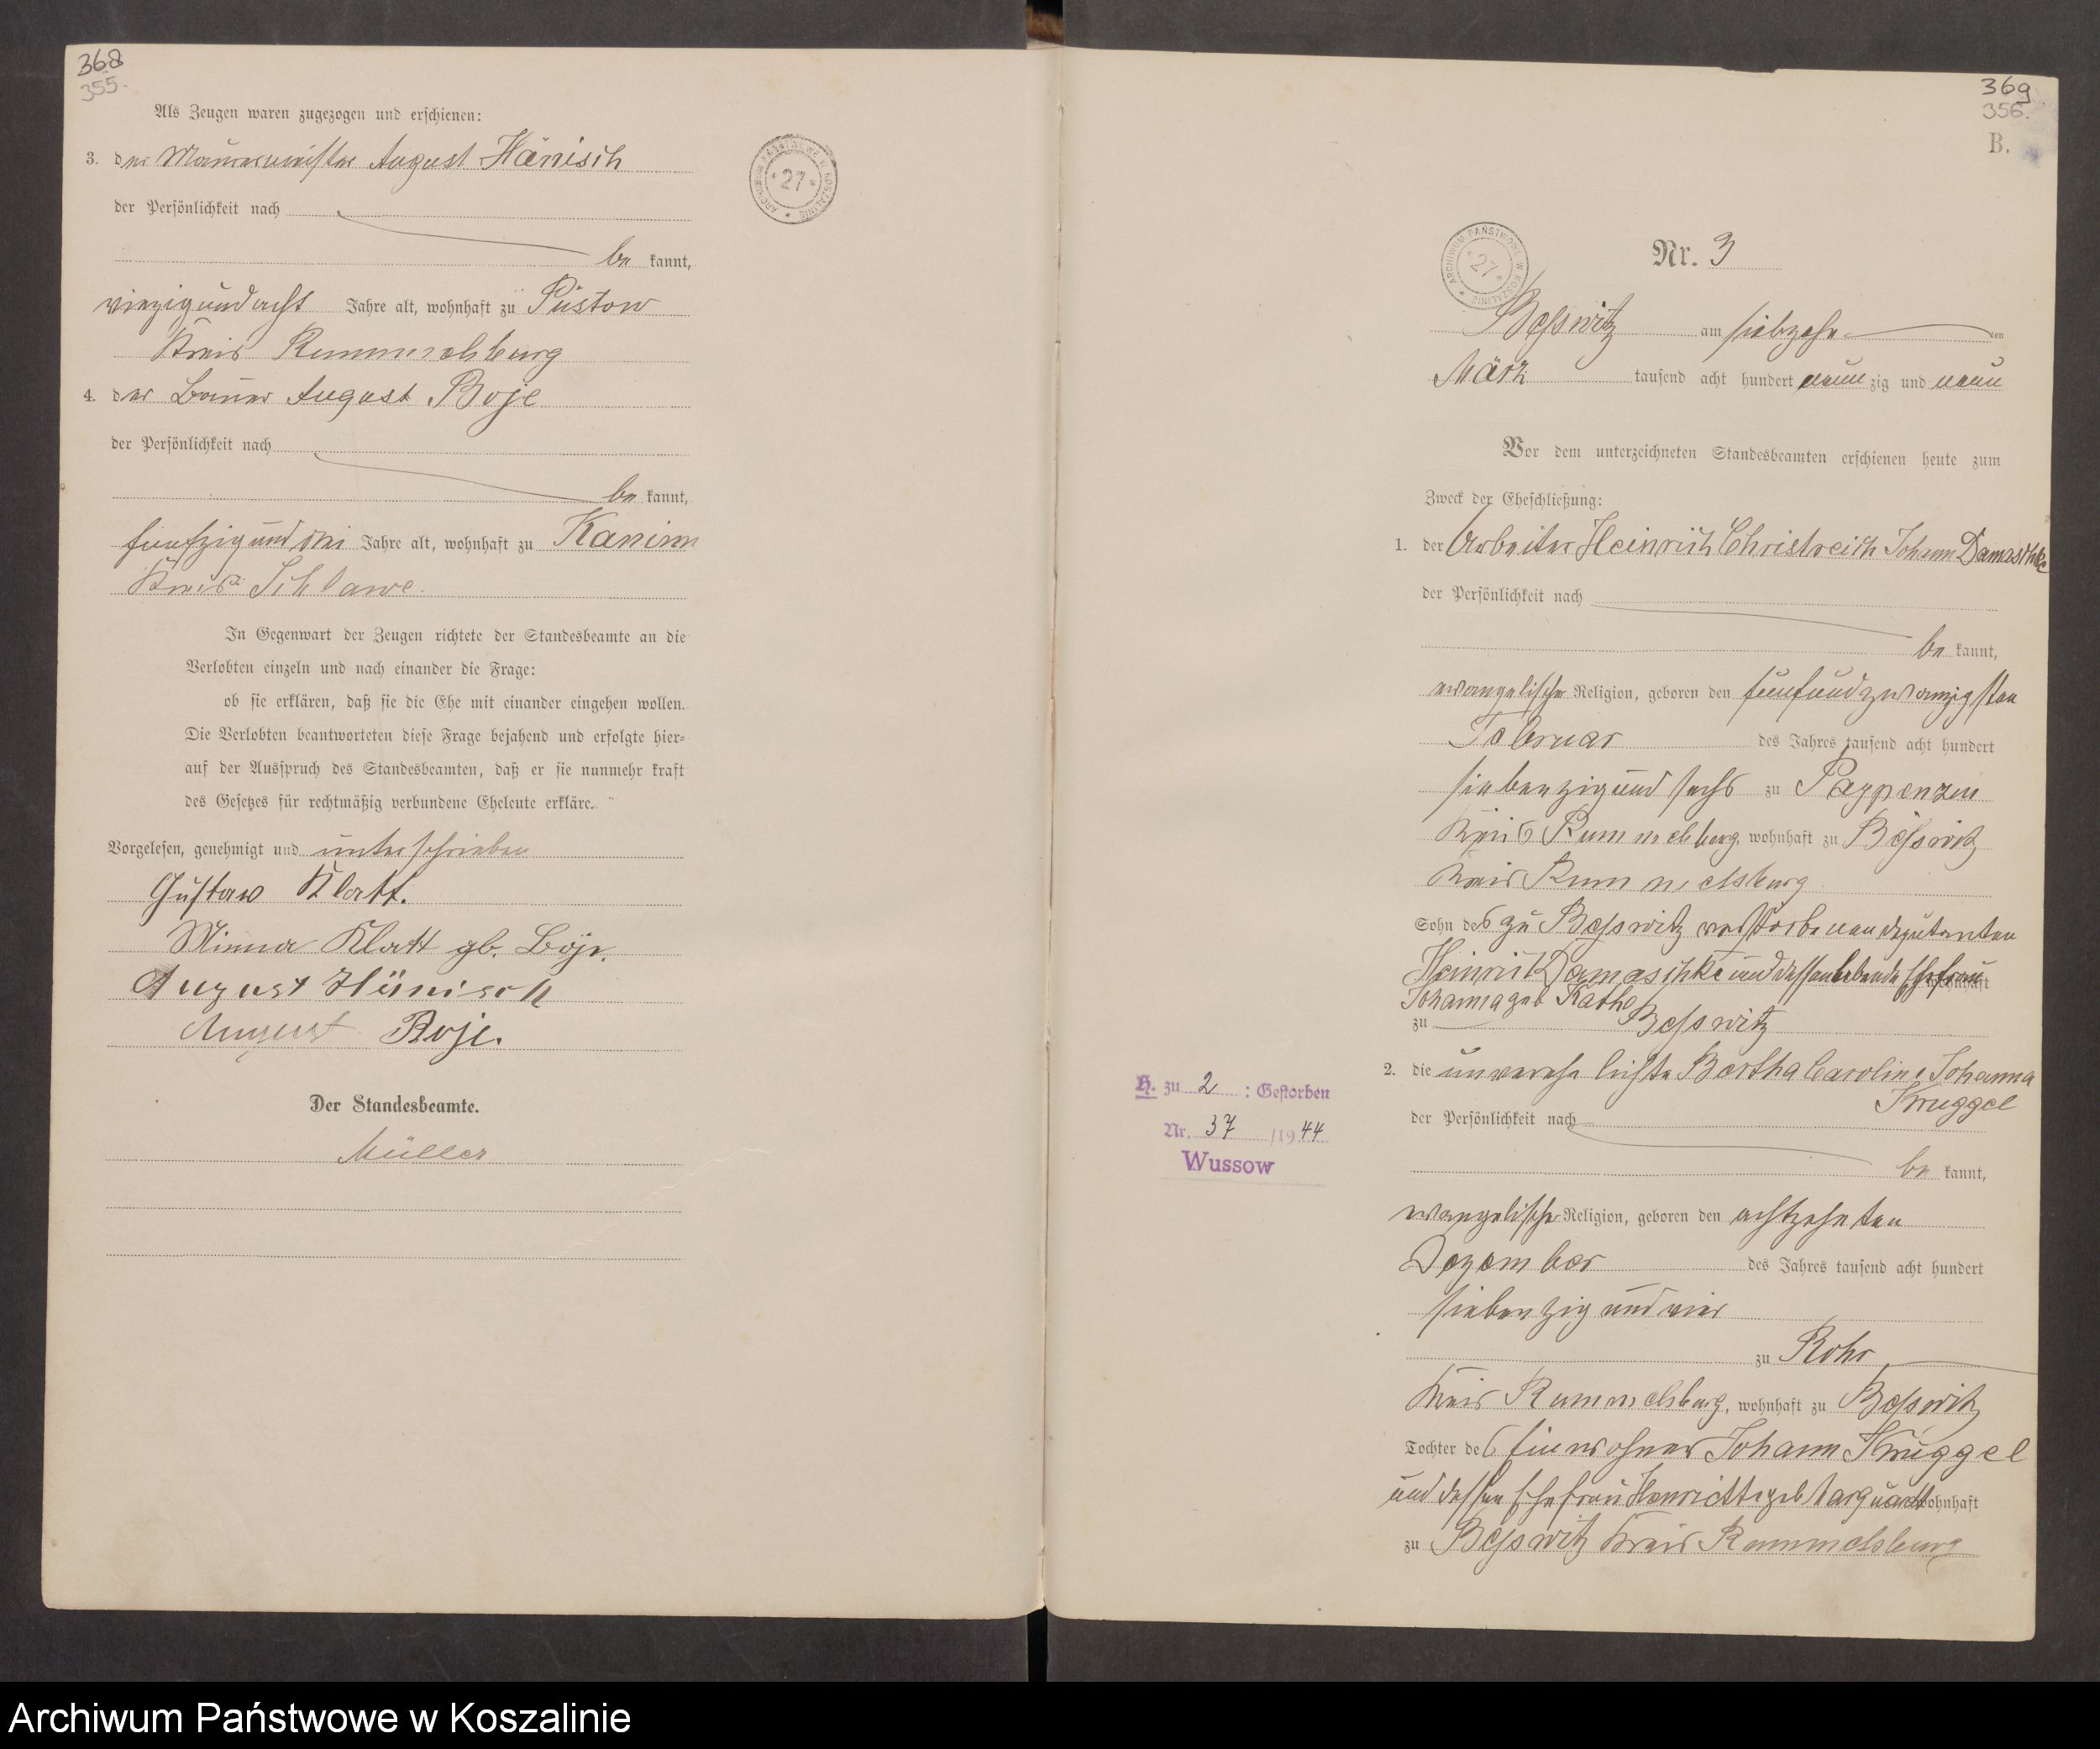 368
355.
Als Zeugen waren zugezogen und erschienen:
3. der Maurermeister August Hänisch
der Persönlichkeit nach
be kannt,
vierzig und acht Jahre alt, wohnhaft zu Püstow
Kreis Rummelsburg
4. der Bauer August Boje
der Persönlichkeit nach
be kannt,
fünfzig und drei Jahre alt, wohnhaft zu Kanin
Kreis Schlawe.
In Gegenwart der Zeugen richtete der Standesbeamte an die
Verlobten einzeln und nach einander die Frage:
ob sie erklären, daß sie die Ehe mit einander eingehen wollen.
Die Verlobten beantworteten diese Frage bejahend und erfolgte hier-
auf der Ausspruch des Standesbeamten, daß er sie nunmehr kraft
des Gesetzes für rechtmäßig verbundene Eheleute erkläre.
Vorgelesen, genehmigt und unterschrieben
Gustav Klatt.
Minna Klatt gb. Boje.
August Hänisch
August Boje.
Der Standesbeamte.
Müller
ARCHIWUM PAŃSTWOWE W KOSZALINIE
* 27 *
369
356.
B.
ARCHIWUM PAŃSTWOWE W KOSZALINIE
* 27 *
Nr. 3
Beßwitz am siebzehn ten
März tausend acht hundert neun zig und neun
Vor dem unterzeichneten Standesbeamten erschienen heute zum
Zweck der Eheschließung:
1. der Arbeiter Heinrich Christreich Johann Damaschke
der Persönlichkeit nach
be kannt,
evangelischer Religion, geboren den fünfundzwanzigsten
Februar des Jahres tausend acht hundert
siebenzig und sechs zu Pappenzin
Kreis Rummelsburg, wohnhaft zu Beßwitz
Kreis Rummelsburg
Sohn des zu Beßwitz verstorbenen Deputanten
Heinrich Damaschke und dessen lebende Ehefrau wohnhaft
Johanna geb Rathe
zu Beßwitz
H. zu 2 : Gestorben
Nr. 37 /1944
Wussow
2. die unverehelichte Bertha Caroline Johanna
Kruggel
der Persönlichkeit nach
be kannt,
evangelischer Religion, geboren den achtzehnten
Dezember des Jahres tausend acht hundert
siebenzig und vier
zu Rohr
Kreis Rummelsburg, wohnhaft zu Beßwitz
Tochter des Einwohner Johann Kruggel
und dessen Ehefrau Henriette geb Marquardt wohnhaft
zu Beßwitz Kreis Rummelsburg
Archiwum Państwowe w Koszalinie